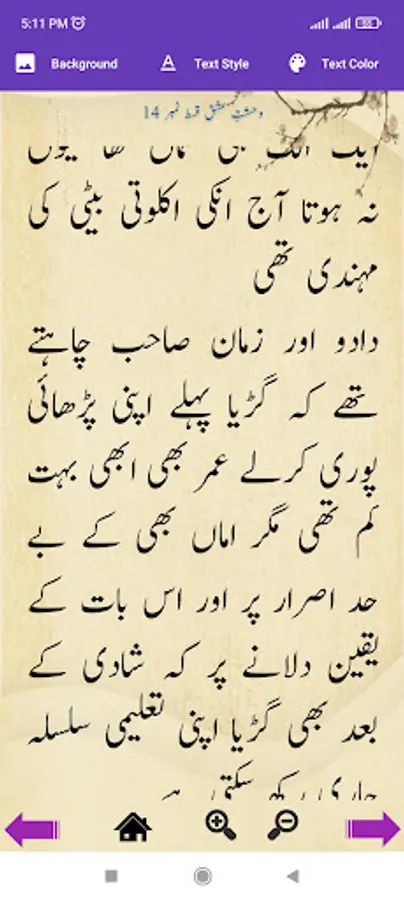 5:11 PM
Background
Text Style
Text Color
وحشتِ عشق قسط نمبر 14
ایک الگ ہی
نہ ہوتا آج انکی اکلوتی بیٹی کی
مہندی تھی
دادو اور زمان صاحب چاہتے
تھے کہ گڑیا پہلے اپنی پڑھائی
پوری کرلے عمر بھی ابھی بہت
کم تھی مگر اماں بھی کے بے
حد اصرار پر اور اس بات کے
یقین دلانے پر کہ شادی کے
بعد بھی گڑیا اپنی تعلیمی سلسلہ
جاری رکھ سکتی ہے